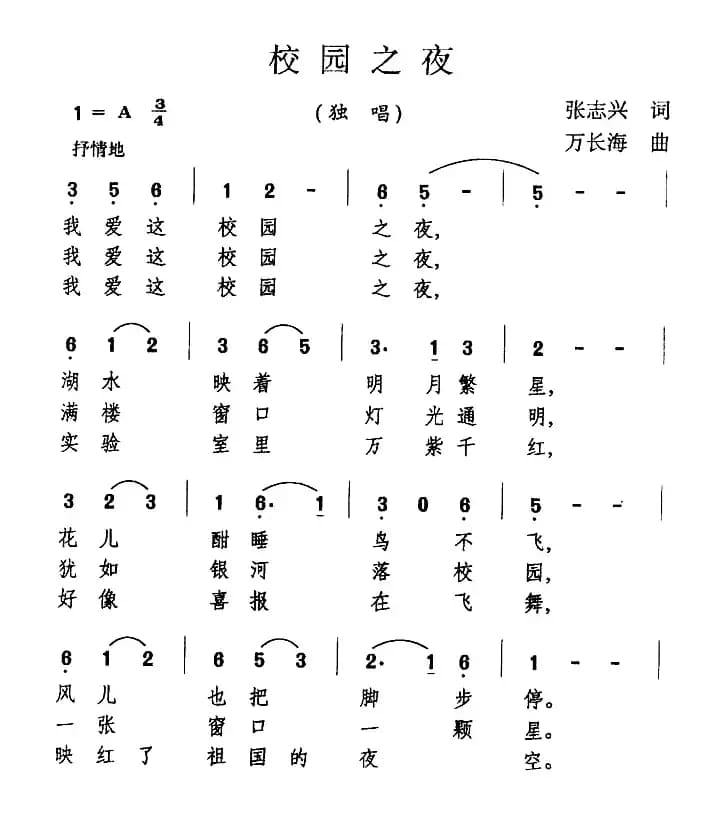 校园之夜
1 = A 3/4 （独 唱） 张志兴 词
抒情地 万长海 曲
3 5 6 | 1 2 - | 6 5 - | 5 - - |
我爱这 校园 之夜，
我爱这 校园 之夜，
我爱这 校园 之夜，
6 1 2 | 3 6 5 | 3· 1 3 | 2 - - |
湖水 映着 明月繁星，
满楼 窗口 灯光通明，
实验 室里 万紫千红，
3 2 3 | 1 6· 1 | 3 0 6 | 5 - - |
花儿 酣睡 鸟不飞，
犹如 银河 落校园，
好像 喜报 在飞舞，
6 1 2 | 6 5 3 | 2· 1 6 | 1 - - |
风儿 也把 脚步停。
一张 窗口 一颗星。
映红了 祖国的 夜空。